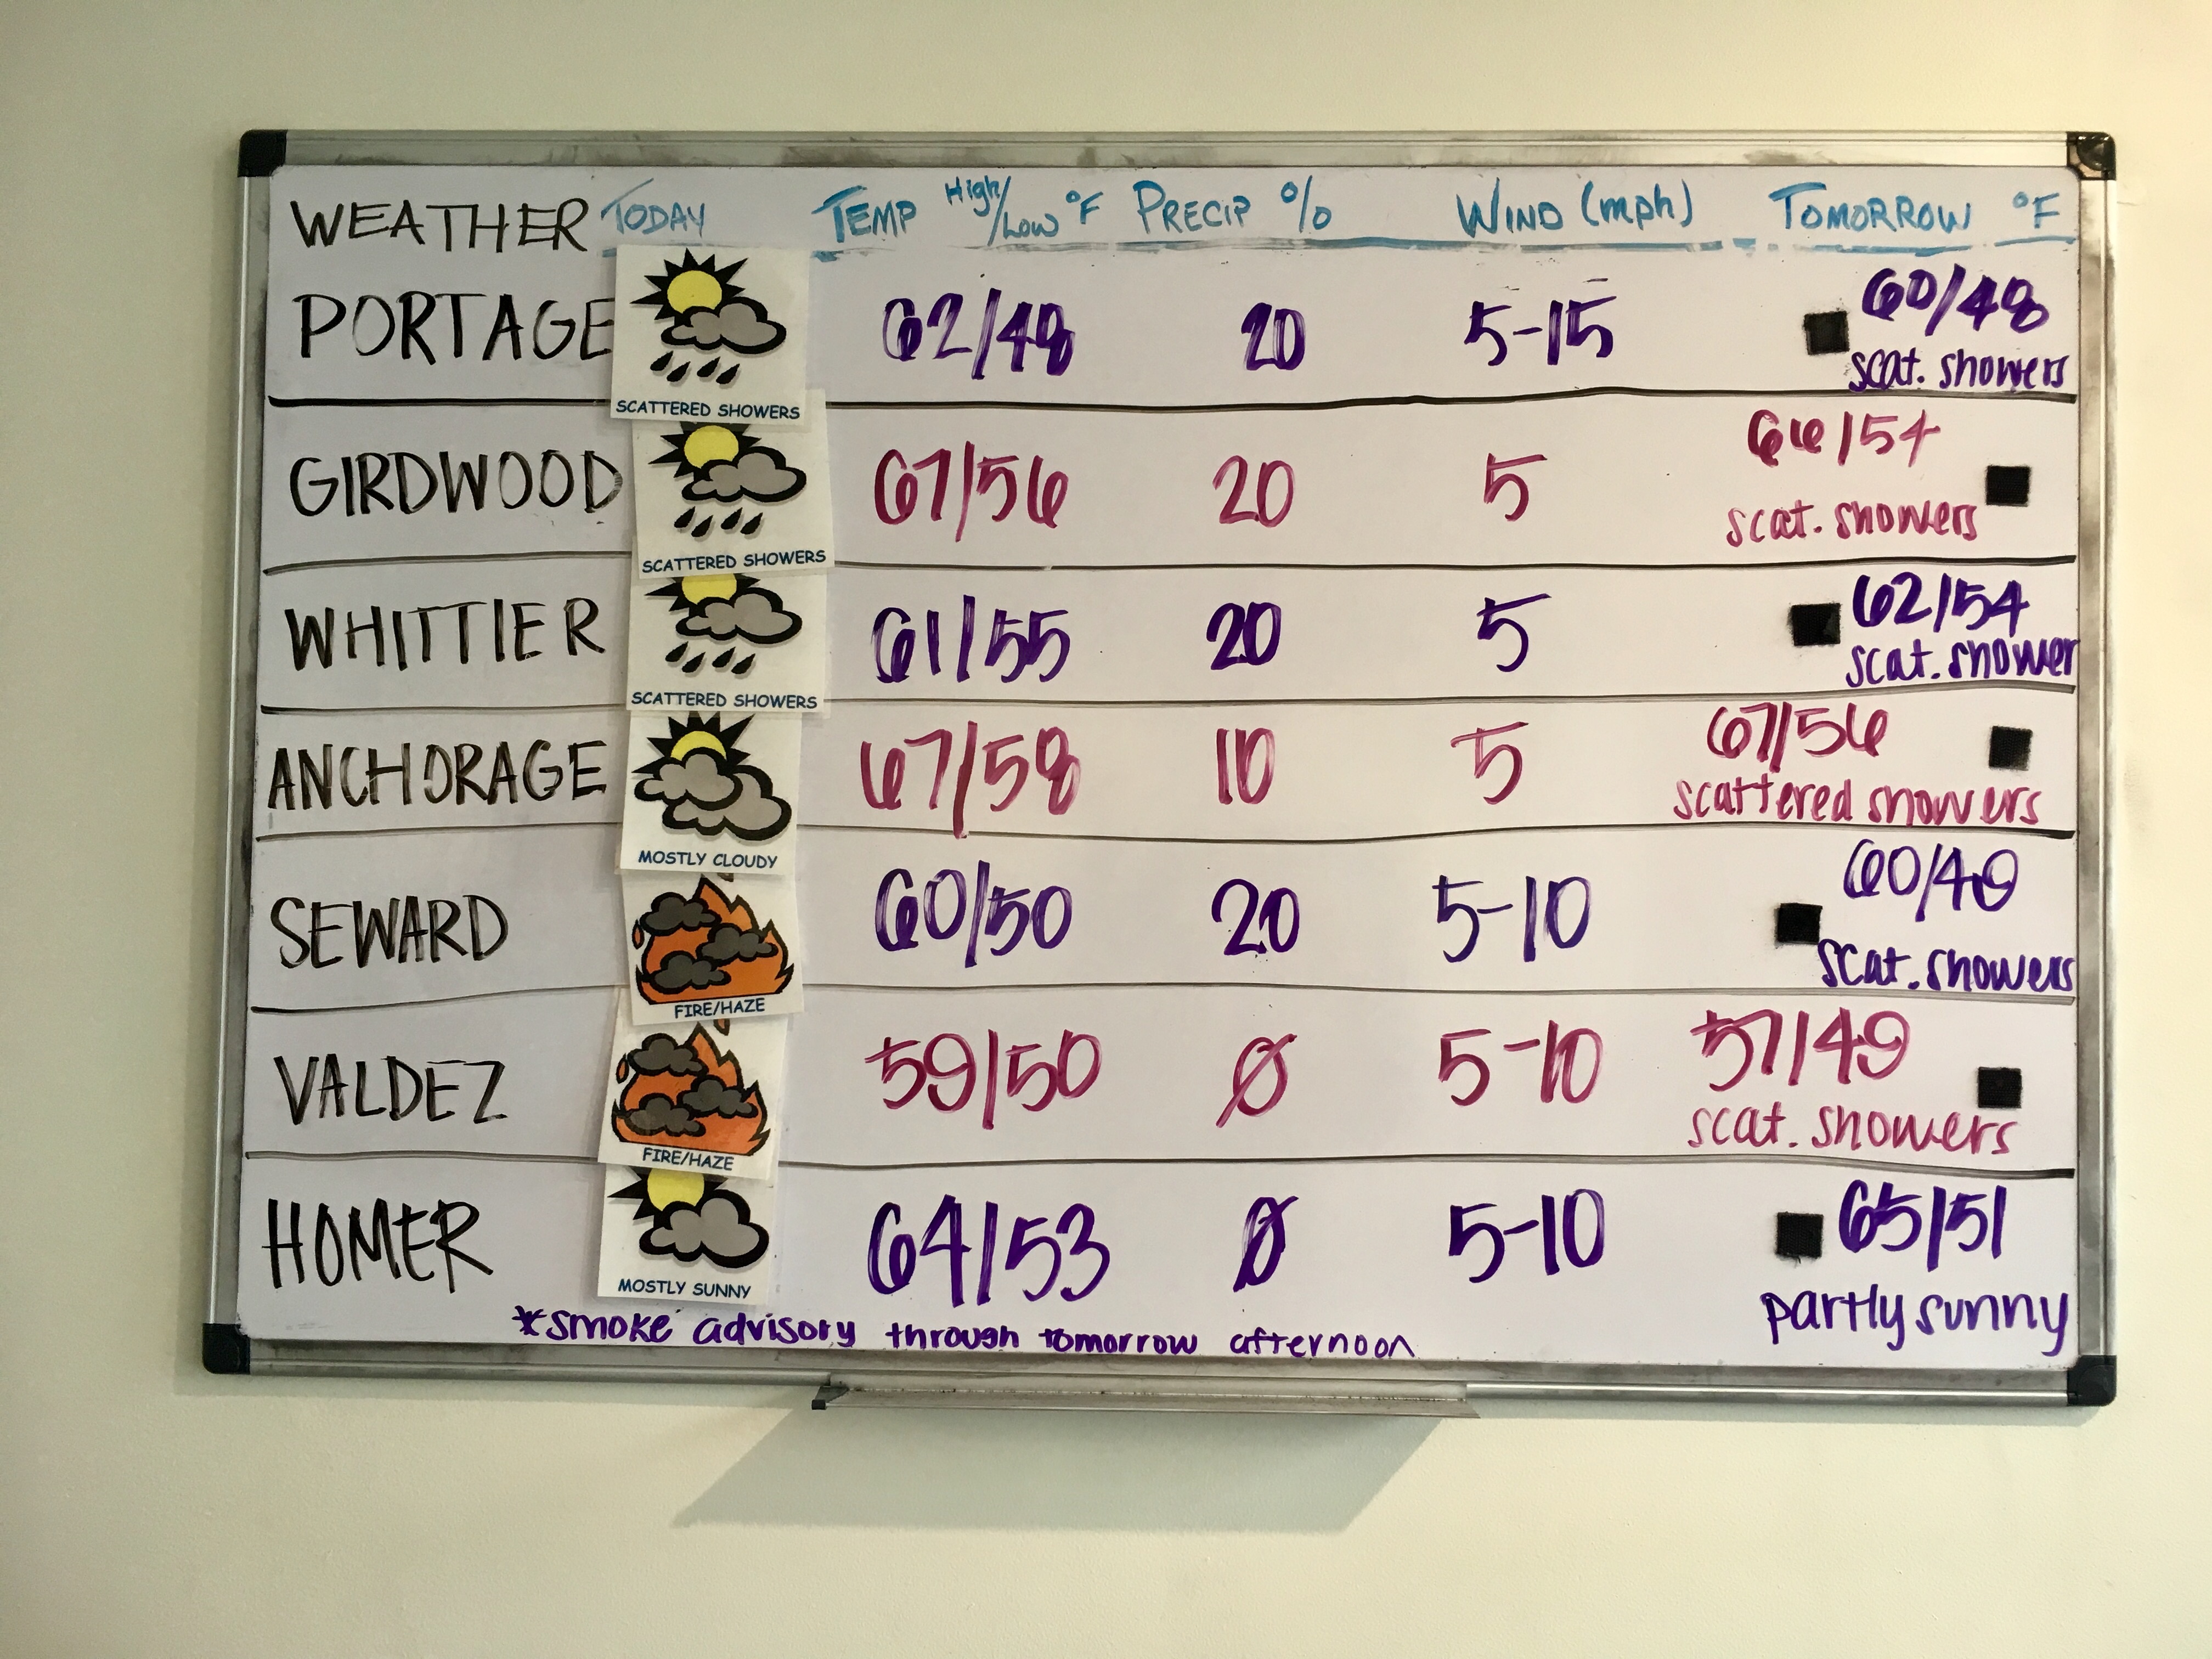 WEATHER TODAY TEMP High/Low °F PRECIP % WIND (mph) TOMORROW °F
PORTAGE 62/48 20 5-15 60/48
scat. showers
SCATTERED SHOWERS
GIRDWOOD 67/56 20 5 66/54
scat. showers
SCATTERED SHOWERS
WHITTIER 61/55 20 5 62/54
scat. shower
SCATTERED SHOWERS
ANCHORAGE 67/58 10 5 67/56
scattered showers
MOSTLY CLOUDY
SEWARD 60/50 20 5-10 60/49
scat. showers
FIRE/HAZE
VALDEZ 59/50 Ø 5-10 57/49
scat. showers
FIRE/HAZE
HOMER 64/53 Ø 5-10 65/51
partly sunny
MOSTLY SUNNY
*smoke advisory through tomorrow afternoon